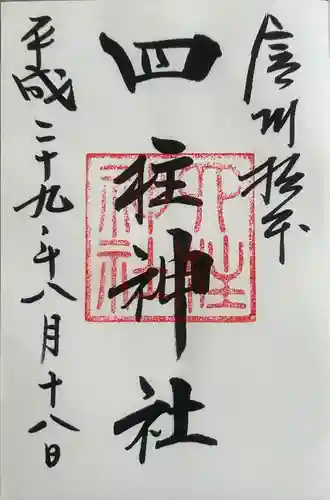 信州松本
四柱神社
四柱
神社
平成二十九年八月十八日